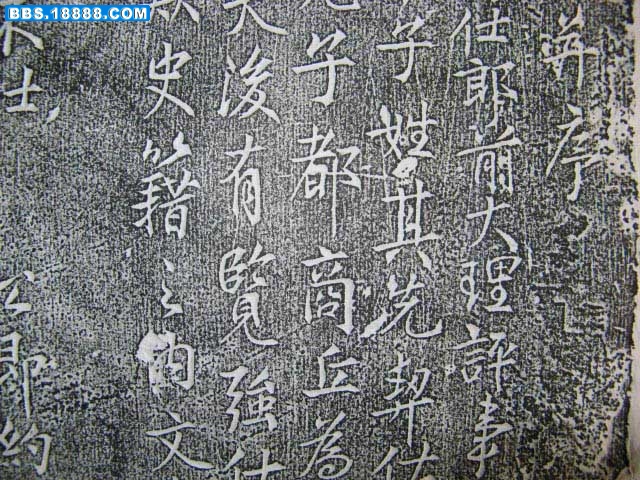 BBS.18888.COM
并序
仕郎前大理評事
子姓其先契佐
子都商丘為
天後有覽強仕
史籍之內文
士
公即約